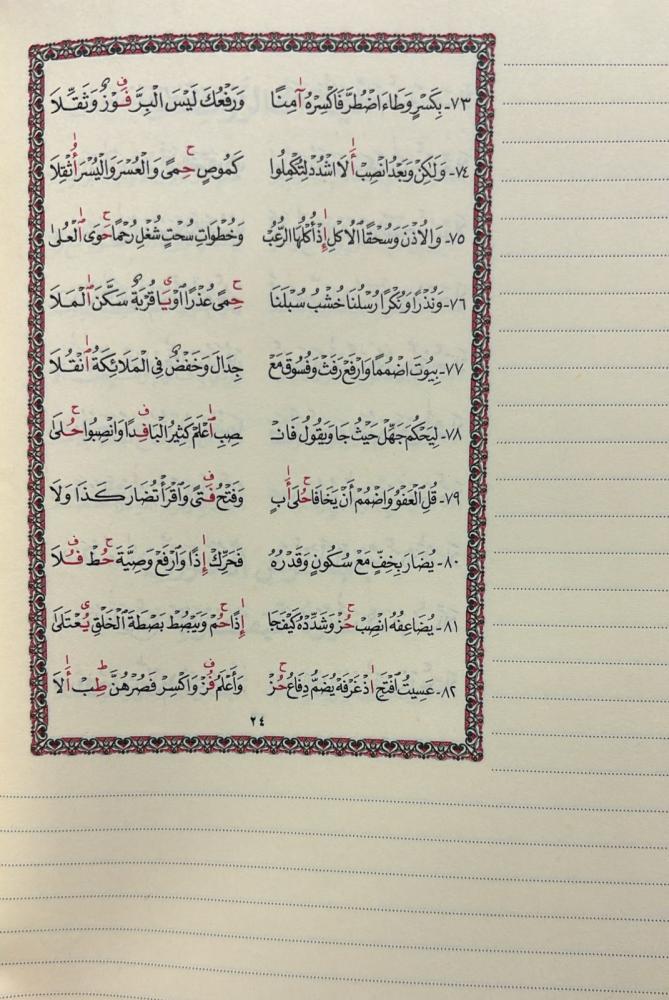 ٧٣- بِكَسْرٍ وَطَاءَ اضْطُرَّ فَاكْسِرْهُ آمِنًا وَرَفْعُكَ لَيْسَ الْبِرُّ فَوْزٌ وَثَقِّلَا
٧٤- وَلَكِنْ وَبَعْدُ انْصِبْ أَلَا اشْدُدْ لِتُكْمِلُوا كَمُوصٍ حِمًى وَالْعُسْرُ وَالْيُسْرُ أُثْقِلَا
٧٥- وَالُاذْنُ وَسُحْقًا الُاكْلُ إِذْ أُكْلُهَا الرُّعُبْ وَخُطْوَاتِ سُحْتٍ شُغْلِ رُحْمًا حَوَى الْعُلَى
٧٦- وَنُذْرًا وَنُكْرًا رُسْلُنَا خُشْبُ سُبْلَنَا حِمًى عُذْرًا اوْ يَا قُرْبَةٌ سَكَّنَ الْمَلَا
٧٧- بِيُوتَ اضْمُمًا وَارْفَعْ رَفَثْ وَفُسُوقَ مَعْ جِدَالَ وَخَفْضٌ فِي الْمَلَائِكَةُ انْقُلَا
٧٨- لِيَحْكُمَ جَهِّلْ حَيْثُ جَا وَيَقُولُ فَانْـ ـصِبِ اعْلَمْ كَثِيرُ الْبَا فِدًا وَانْصِبُوا حُلَى
٧٩- قُلِ الْعَفْوُ وَاضْمُمْ أَنْ يَخَافَا حُلَى أَبٍ وَفَتْحُ فَتًى وَاقْرَأْ تُضَارَ كَذَا وَلَا
٨٠- يُضَارَ بِخِفٍّ مَعْ سُكُونٍ وَقَدْرُهُ فَحَرِّكْ إِذًا وَارْفَعْ وَصِيَّةَ حُطْ فُلَا
٨١- يُضَاعِفُهُ انْصِبْ حُزْ وَشَدِّدْهُ كَيْفَ جَا إِذًا حُمْ وَيَبْصُطْ بَصْطَةَ الْخَلْقِ يُعْتَلَى
٨٢- عَسِيتُ افْتَحِ اذْ غَرْفَهْ يُضَمُّ دِفَاعُ حُزْ وَأَعْلَمُ فُزْ وَاكْسِرْ فَصُرْهُنَّ طِبْ أَلَا
٢٤